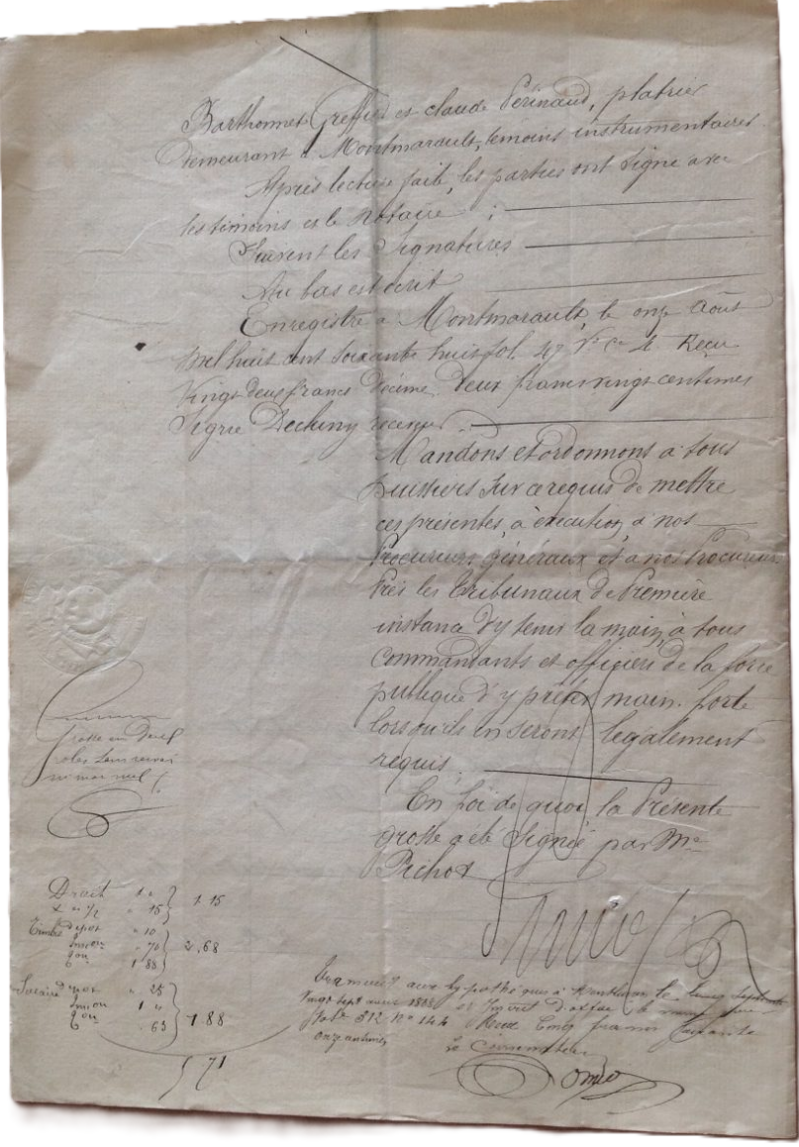 Barthonnet Greffier et claude Périnaud, platrier
demeurant à Montmarault, témoins instrumentaires
Après lecture faite, les parties ont signé avec
les témoins et le Notaire ;
Suivent les Signatures
Au bas est écrit
Enregistré à Montmarault, le onze Août
mil huit cent soixante huit fol. 47 V° Ce 4 Reçu
Vingt deux francs décime deux francs vingt centimes
Signé receveur
Mandons et ordonnons à tous
huissiers sur ce requis de mettre
ces présentes, à exécution, à nos
Procureurs généraux et à nos Procureurs
Près les tribunaux de Première
instance d'y tenir la main, à tous
commandants et officiers de la force
publique d'y prêter main-forte
lorsqu'ils en seront légalement
requis.
En foi de quoi, la Présente
grosse a été Signée par Me
Pichot
grosse en deux
roles sans renvoi
ni mot nul
Droit 1 " } 1 15
" 15
dépot " 10
" 70 } 2,68
1 88
Salaire dépot " 25
1 " } 1 88
63
5 71
aux hypothèques à le
sept 1868
fol. 312 N° 144 Reçu Cinq francs soixante
onze centimes
Le Conservateur